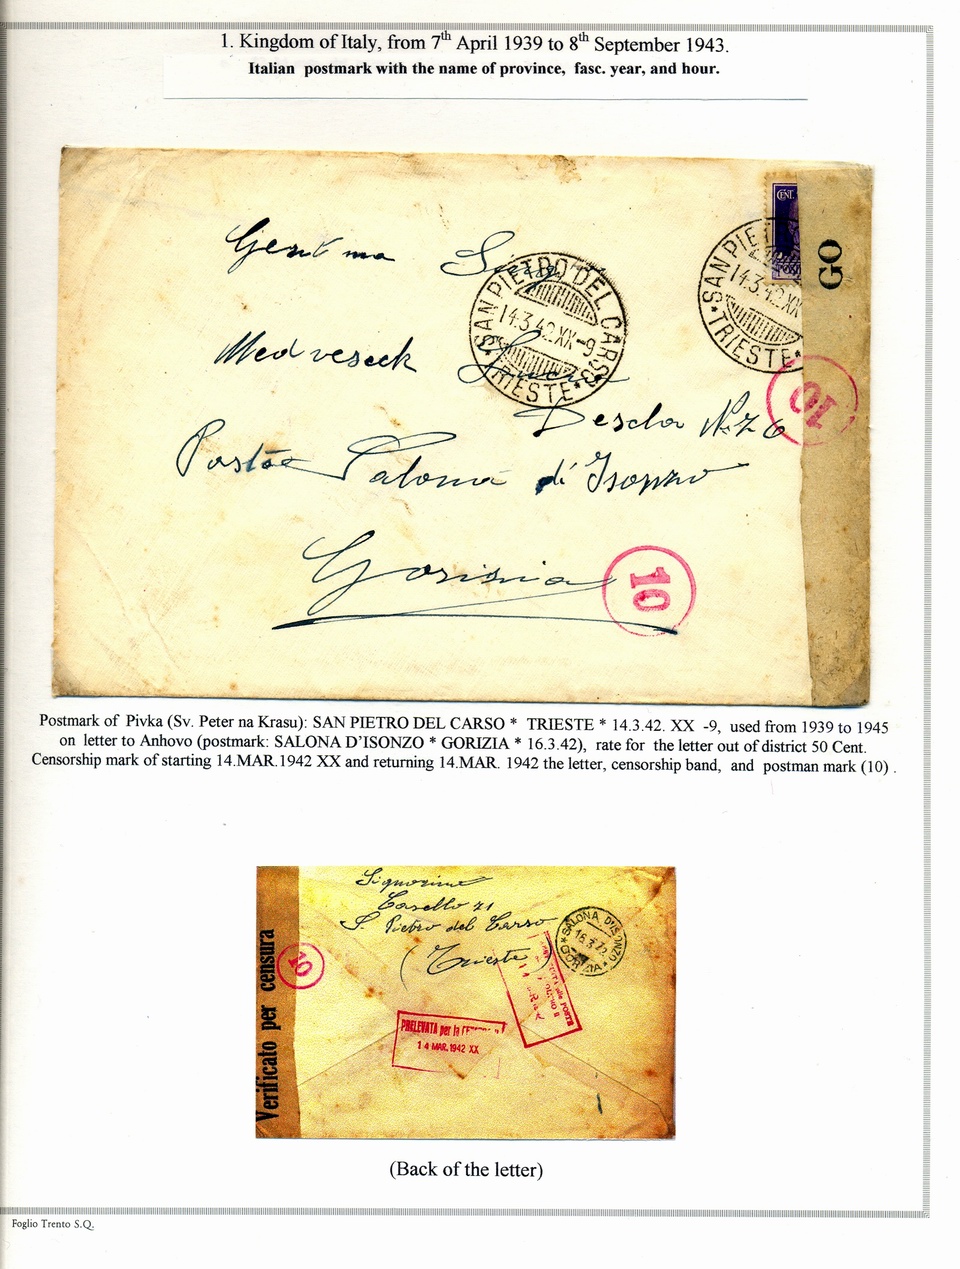 1. Kingdom of Italy, from 7th April 1939 to 8th September 1943.
Italian postmark with the name of province, fasc. year, and hour.
CENT.
GO
SAN PIETRO DEL CARSO
14.3.42.XX-9
* TRIESTE *
SAN PIET
14.3.42.XX
* TRIESTE *
Gentma Sig
Medveseck
Descla N. 76
10
Posta Salona d'Isonzo
Gorizia
10
Postmark of Pivka (Sv. Peter na Krasu): SAN PIETRO DEL CARSO * TRIESTE * 14.3.42. XX -9, used from 1939 to 1945
on letter to Anhovo (postmark: SALONA D'ISONZO * GORIZIA * 16.3.42), rate for the letter out of district 50 Cent.
Censorship mark of starting 14.MAR.1942 XX and returning 14.MAR. 1942 the letter, censorship band, and postman mark (10) .
Signorine
Casello 21
S. Pietro del Carso
(Trieste)
SALONA D'ISONZO
16.3.42
* GORIZIA *
10
Verificato per censura
alle POSTE
PRELEVATA per la CENSURA
14 MAR. 1942 XX
(Back of the letter)
Foglio Trento S.Q.